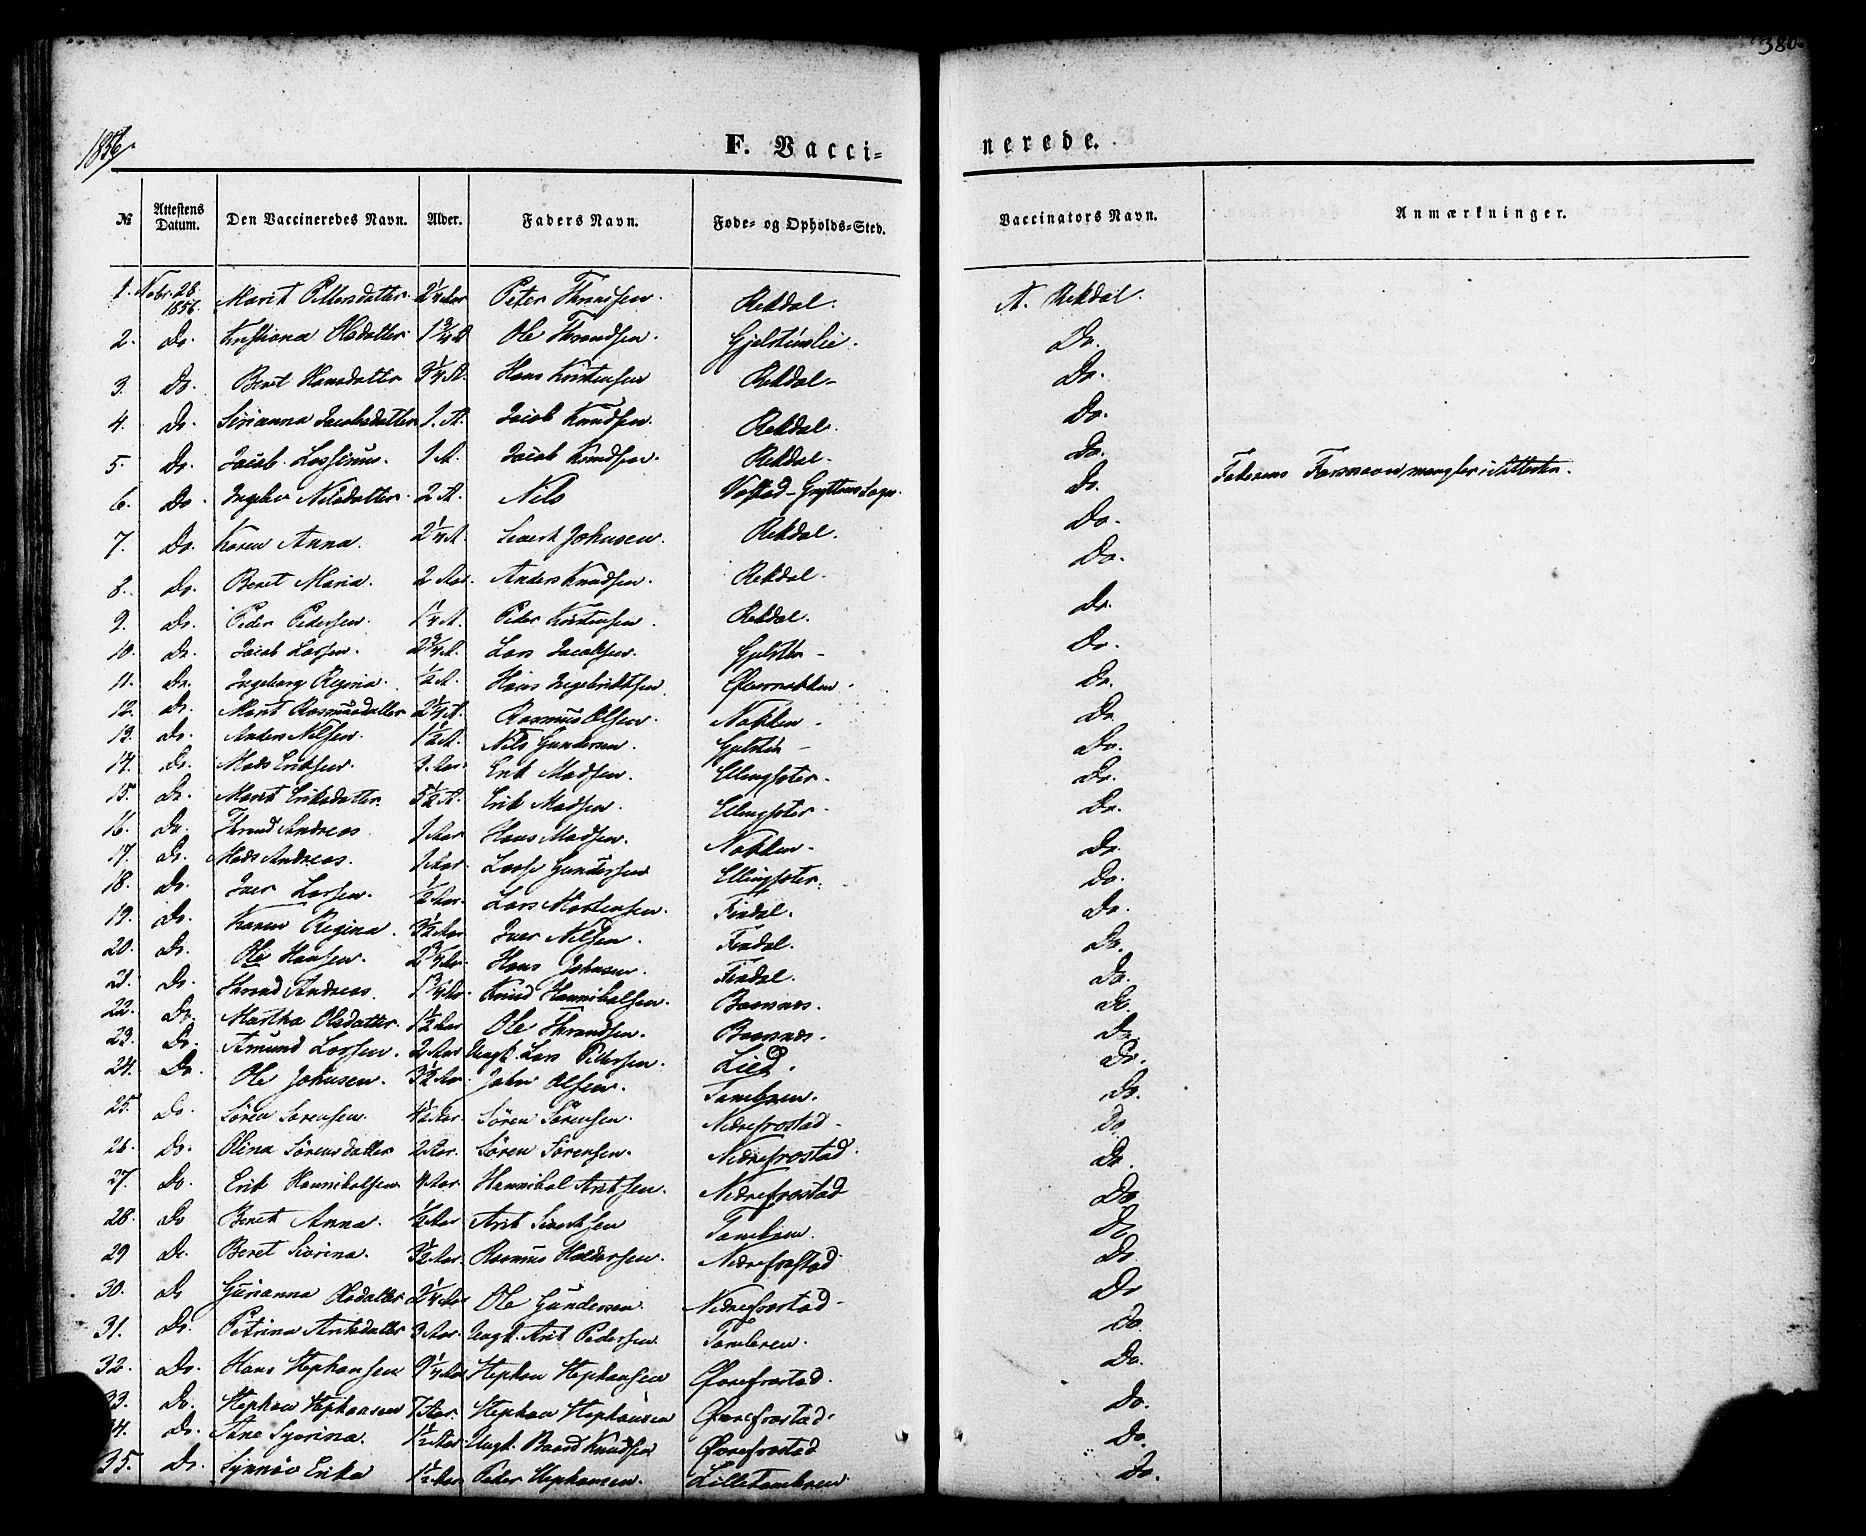 380.
1856.
F. Vacci= nerede.
№ Attestens Datum. Den Vaccineredes Navn. Alder. Faders Navn. Føde- og Opholds-Sted. Vaccinators Navn. Anmærkninger.
1. Febr. 28 1856. Marit Pettersdatter. 2 1/4 Aar Peter Thronsen. Rekdal. A. Rekdal.
2. Do. Kristiana Olsdatter 1 3/4 A Ole Throndsen. Gjelstenlie. Do.
3. Do. Beret Hansdatter 3 1/4 A. Hans Kristensen Rekdal. Do.
4. Do. Sirianna Jacobsdatter 1. A. Jacob Knudsen. Rekdal. Do.
5. Do. Jacob 1 A. Jacob Knudsen. Rekdal. Do.
6. Do. Nilsdatter. 2 A. Nils Gryttens Sogn. Do. Faderens mangler i Attesten.
7. Do. Karen Anna. 2 1/4 A. Sivert Johnsen. Rekdal. Do.
8. Do. Beret Maria. 2 Aar. Anders Knudsen. Rekdal. Do.
9. Do. Peder Pedersen. 1 1/4 A. Peder Kristensen. Rekdal. Do.
10. Do. Jacob Larsen. 2 3/4 A. Lars Jacobsen. Gjelsten Do.
11. Do. Ingeborg Regina. 1/2 A. Hans Ingebrigtsen Do.
12. Do. Marit Rasmusdatter 2 1/4 A. Rasmus Olsen. Nakken Do.
13. Do. Anders Nilsen. 1 1/2 A. Nils Gundersen. Gjelsten Do.
14. Do. Mads Eriksen. 3 Aar. Erik Madsen. Ellingsæter. Do.
15. Do. Marit Eriksdatter 5 1/2 A. Erik Madsen. Ellingsæter Do.
16. Do. Thrond Andreas 1 Aar Hans Madsen. Nakken Do.
17. Do. Mads Andreas. 1 Aar. Gundersen Ellingsæter. Do.
18. Do. Iver Larsen. 1/2 Aar. Lars Mortensen. Findal. Do.
19. Do. Karen Regina. 3 1/2 Aar Iver Nilsen. Findal. Do.
20. Do. Ole Hansen. Hans Johnsen. Findal. Do.
21. Do. Thrond Andreas. Knud Hannibalsen. Baasnæs. Do.
22. Do. Martha Olsdatter. 1 1/2 Aar Ole Throndsen. Baasnæs. Do.
23. Do. Amund Larsen. 2 Aar Ungk. Lars Pettersen. Lied. Do.
24. Do. Ole Johnsen. 3 1/2 Aar. John Olsen. Tombren. Do.
25. Do. Sören Sørensen. Sören Sørensen. Nedrefrostad Do.
26. Do. Olina Sörensdatter 2 Aar. Sören Sörensen. Nedrefrostad. Do.
27. Do. Erik Hannibalsen 4 Aar. Hannibal Antsen. Nedrefrostad Do
28. Do Beret Anna. 1/2 Aar Arit Sivertsen Tombren. Do
29 Do. Beret Siorina. 3 1/2 Aar. Rasmus Haldorsen. Nedrefrostad Do
30. Do Gurianna Olsdatter 2 1/4 Aar Ole Gundersen. Nedrefrostad Do
31. Do. Petrina 3 Aar. Ungk. Arit Pedersen Tombren. Do.
32. Do. Hans Stephansen 9 1/4 Aar Stephan Stephansen Øvrefrostad. Do.
33. Do. Stephan Stephansen 7 Aar. Stephan Stephansen Øvrefrostad. Do.
34. Do. Ane Syorina. 1 1/2 Aar. Ungk. Baard Knudsen Øvrefrostad Do.
35. Do. Synnöv Erika 1 1/2 Aar Peder Stephansen. Lilletombren Do.